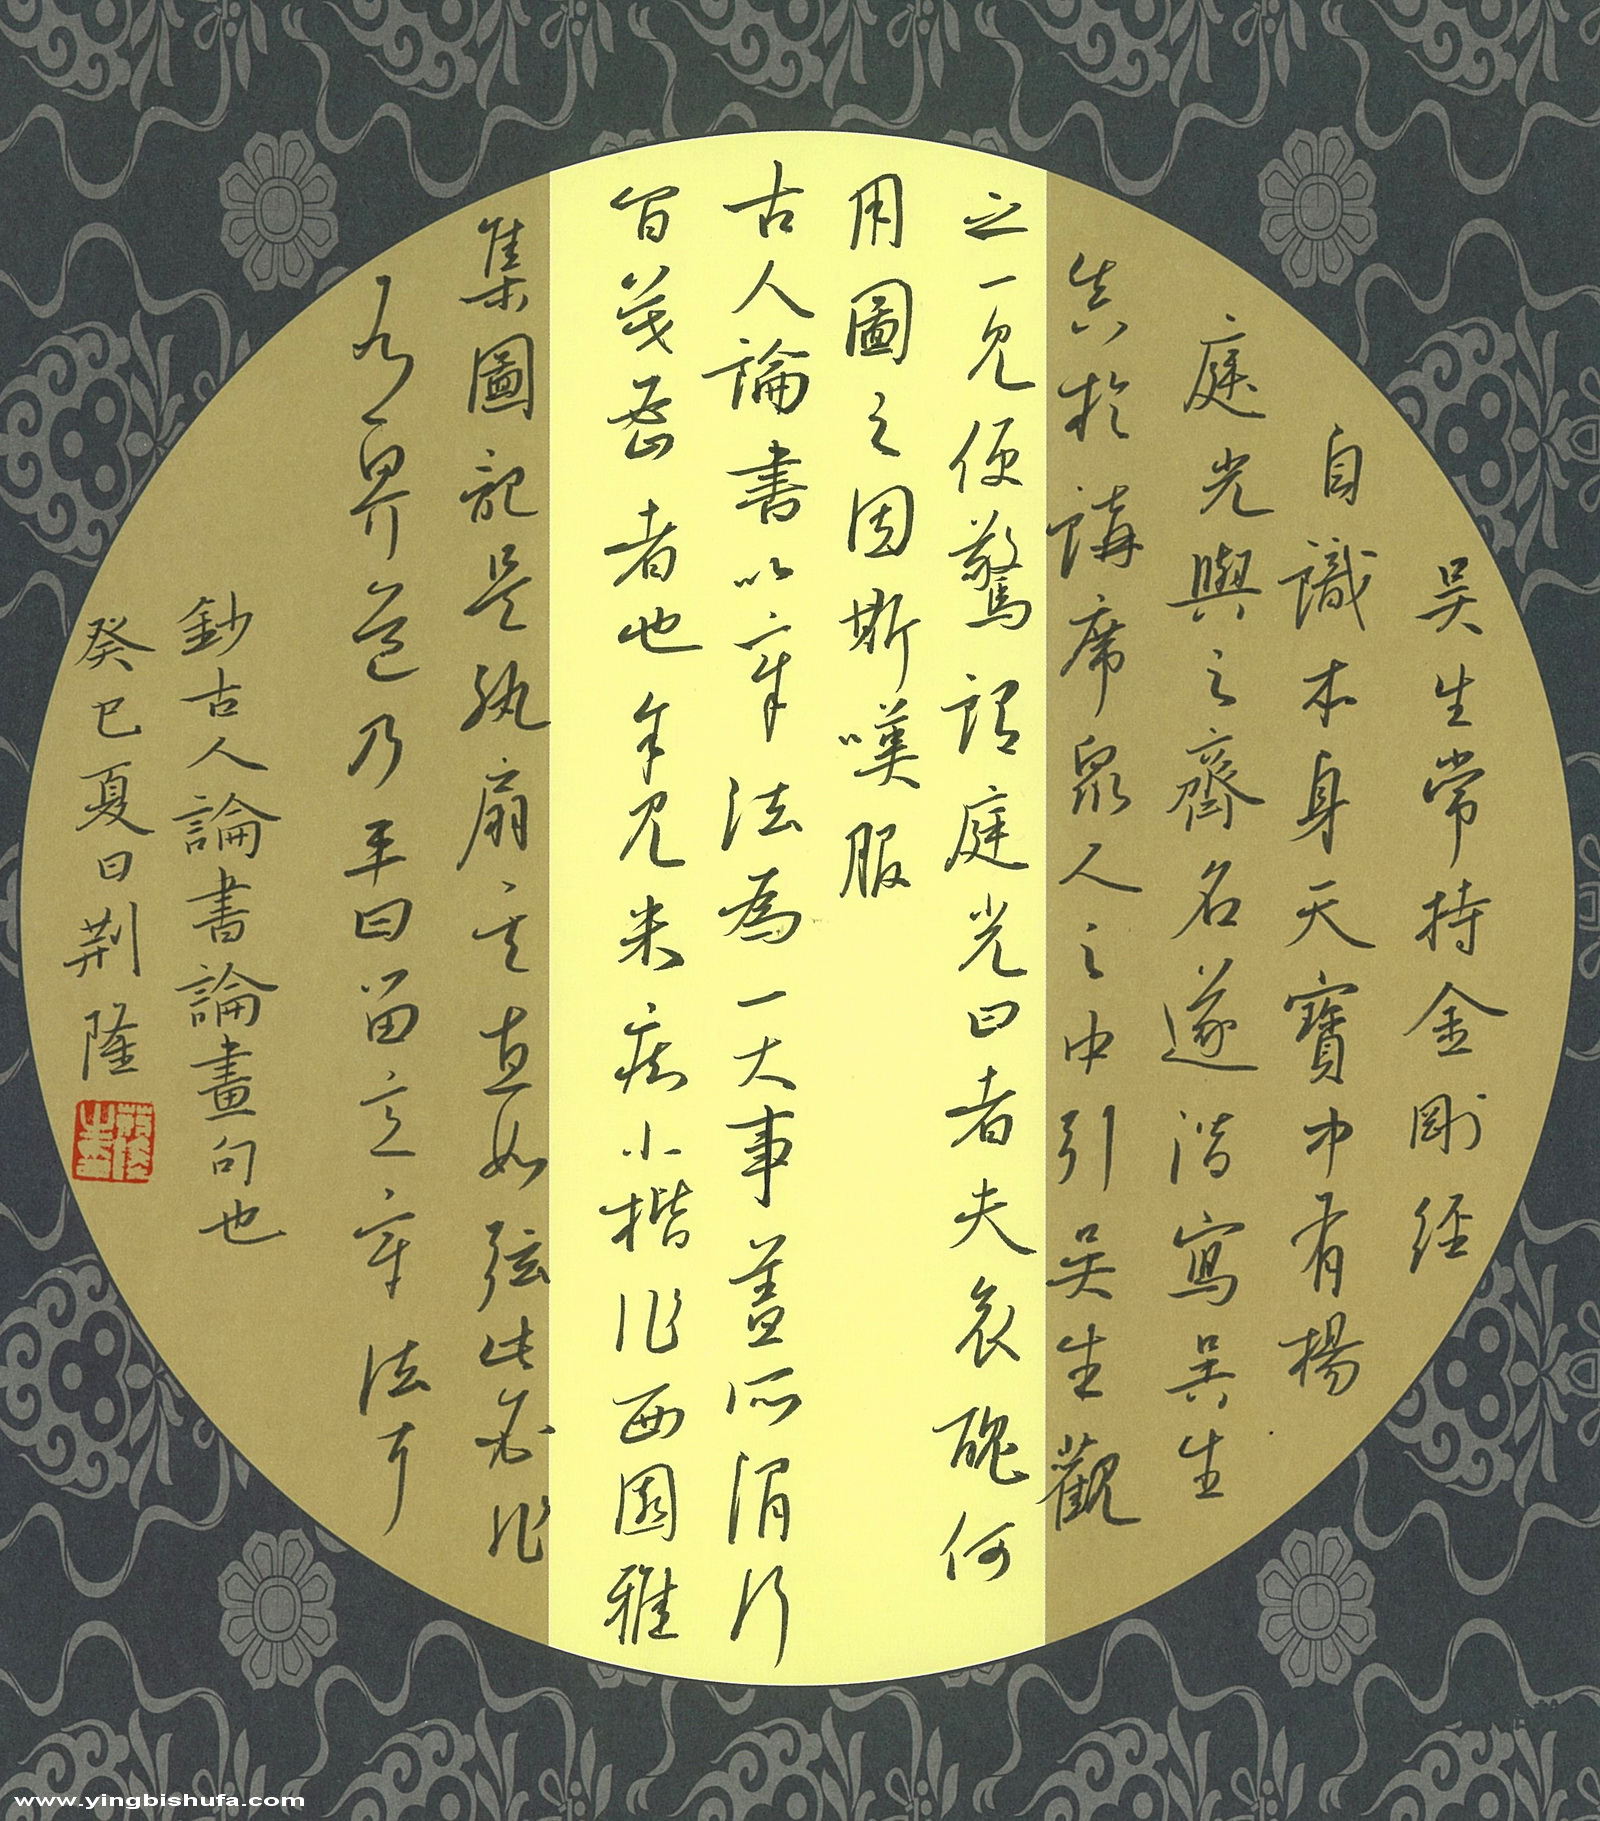 吴生常持金剛經
自識本身天寶中有楊
庭光與之齊名遂潛寫吴生
真於講席眾人之中引吴生觀
之一見便驚語庭光曰老夫衰醜何
用圖之因斯嘆服
古人論書以章法為一大事蓋所謂行
間茂密者也余見米癡小楷作西園雅
集圖記是紈扇其直如弦此必非
有界道乃平日留意章法耳
鈔古人論書論畫句也
癸巳夏日荆隆
www.yingbishufa.com